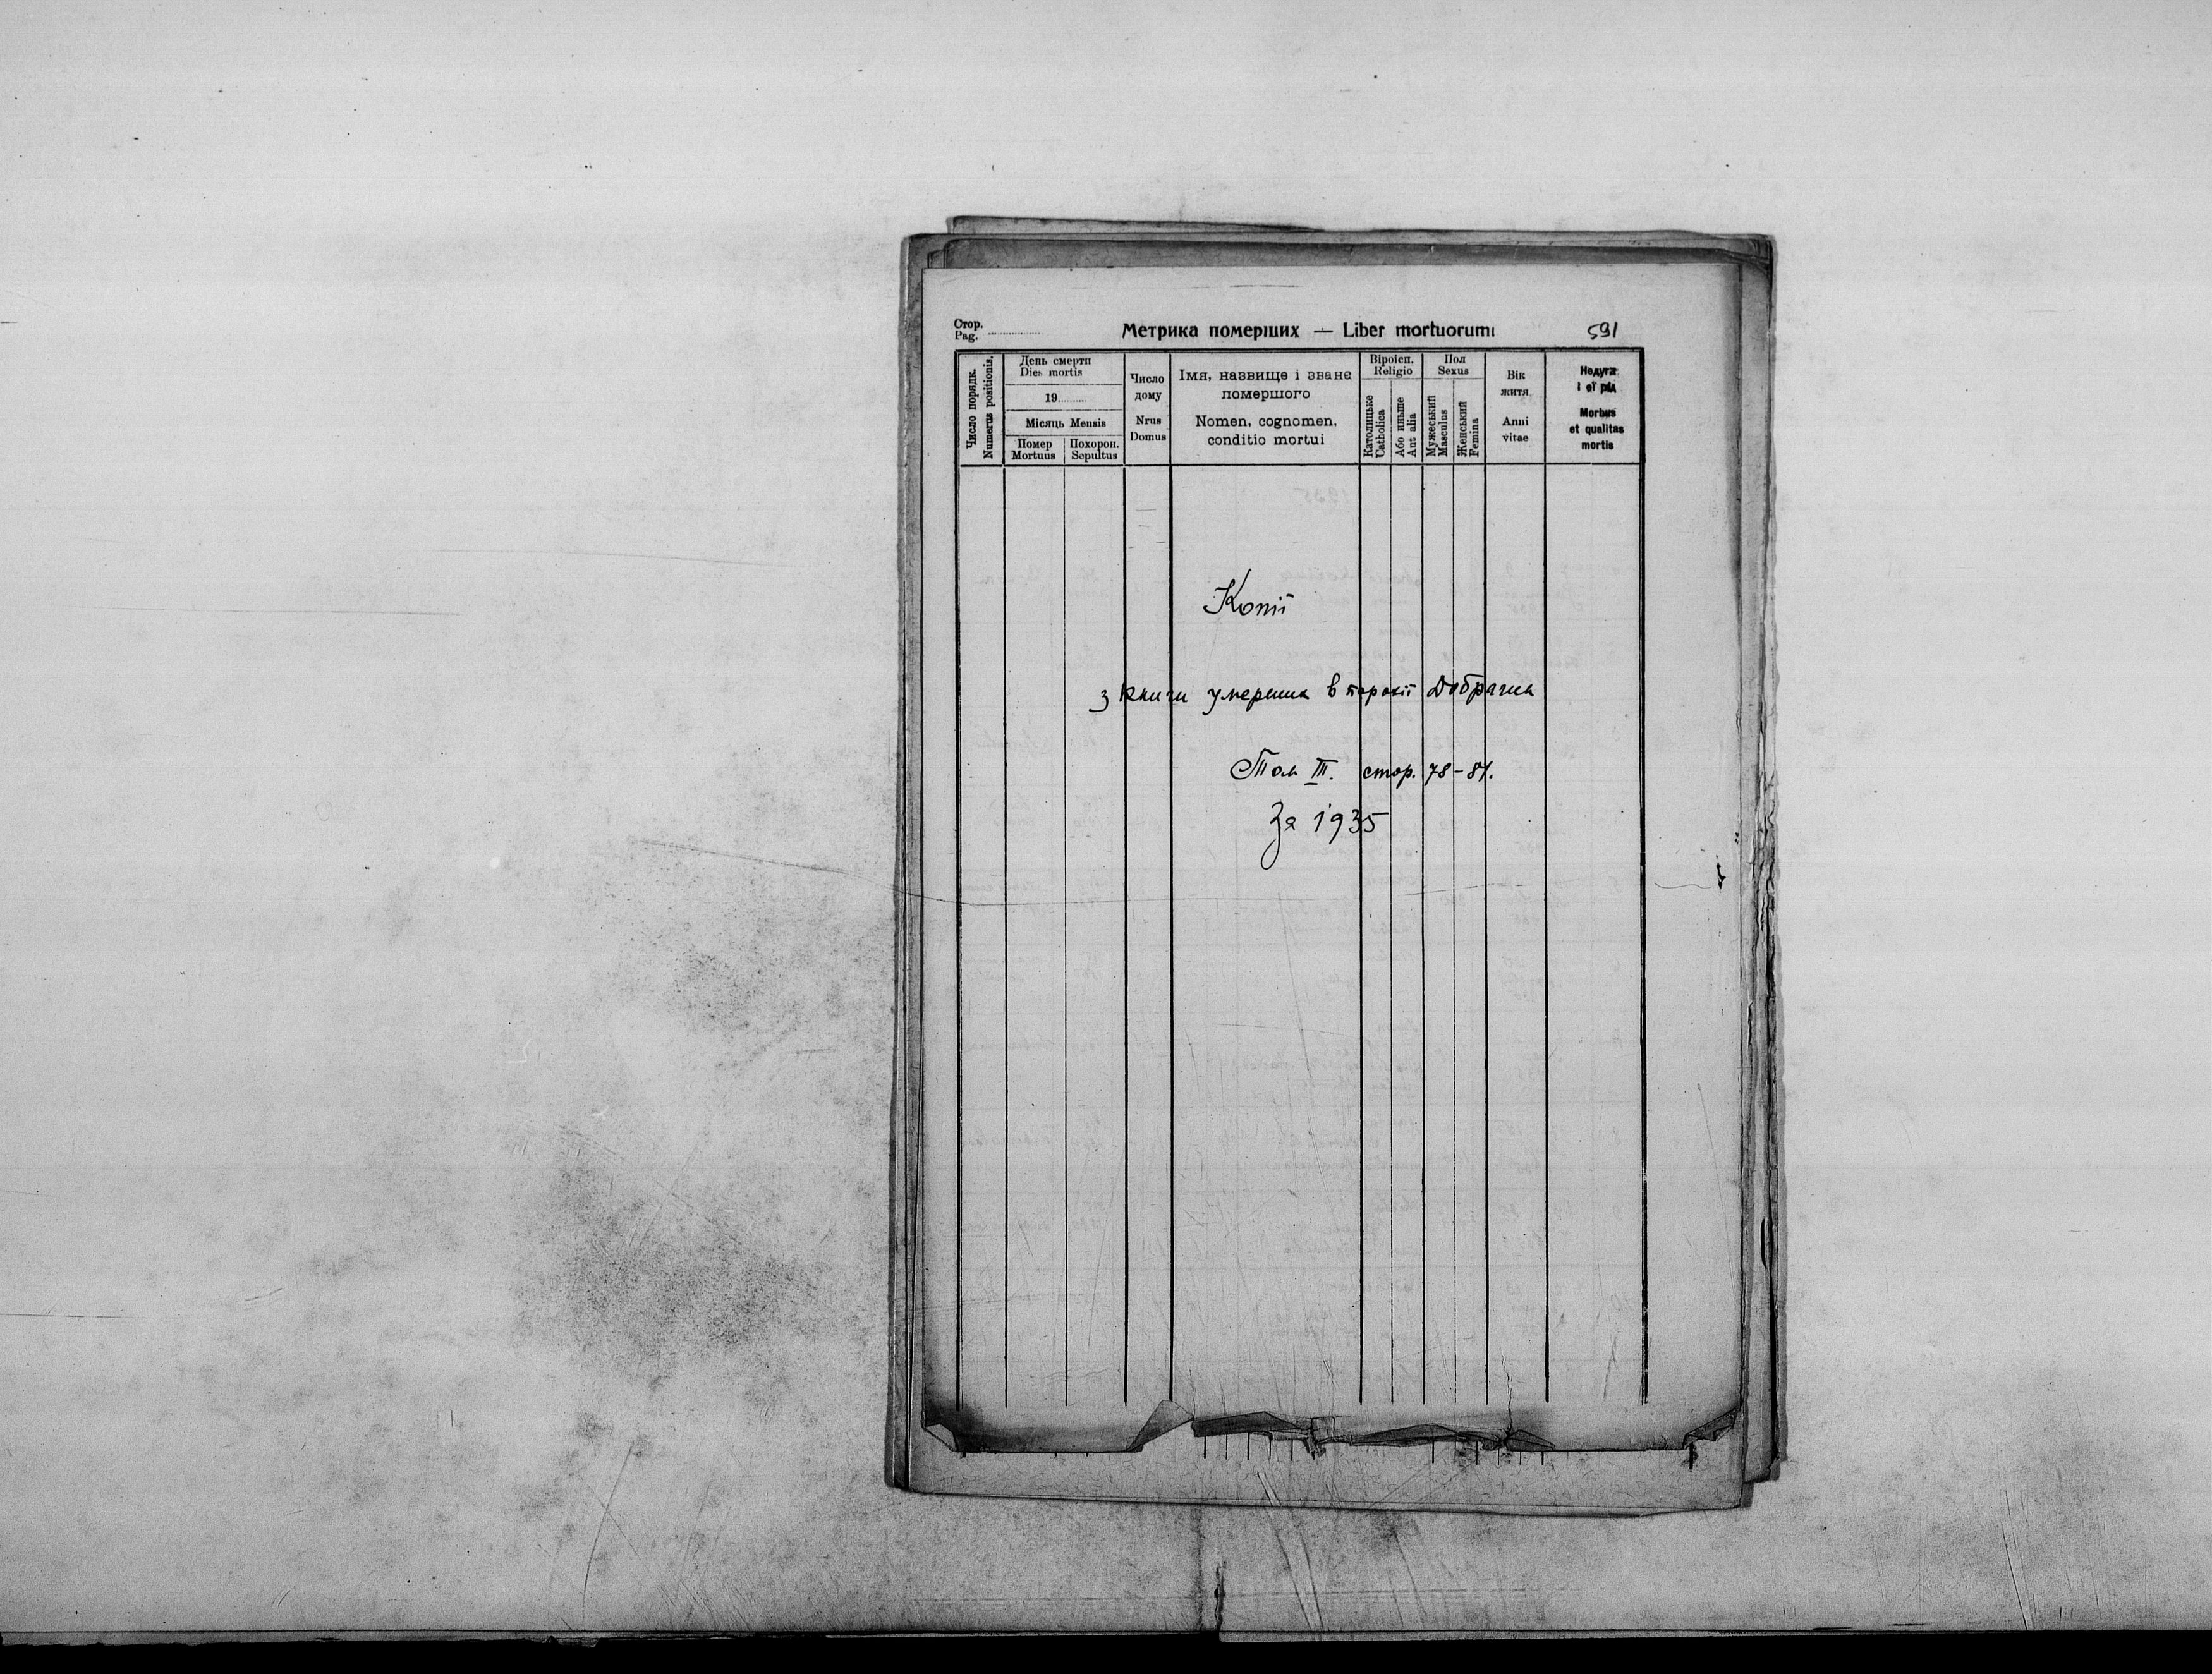 Стор.
Pag.
Метрика померших — Liber mortuorum
591
Число порядк.
Numerus positionis.
День смерти
Dies mortis
19
Місяць Mensis
Помер
Mortuus
Похорон.
Sepultus
Число
дому
Nrus
Domus
Імя, назвище і зване
помершого
Nomen, cognomen,
conditio mortui
Віроісп.
Religio
Католицьке
Catholica
Або иньше
Aut alia
Пол
Sexus
Мужеський
Masculus
Женський
Femina
Вік
житя
Anni
vitae
Недуга
і єї рід
Morbus
et qualitas
mortis
Копії
з книги умерших в парохії Добрачин
Том III. стор. 78-81.
За 1935